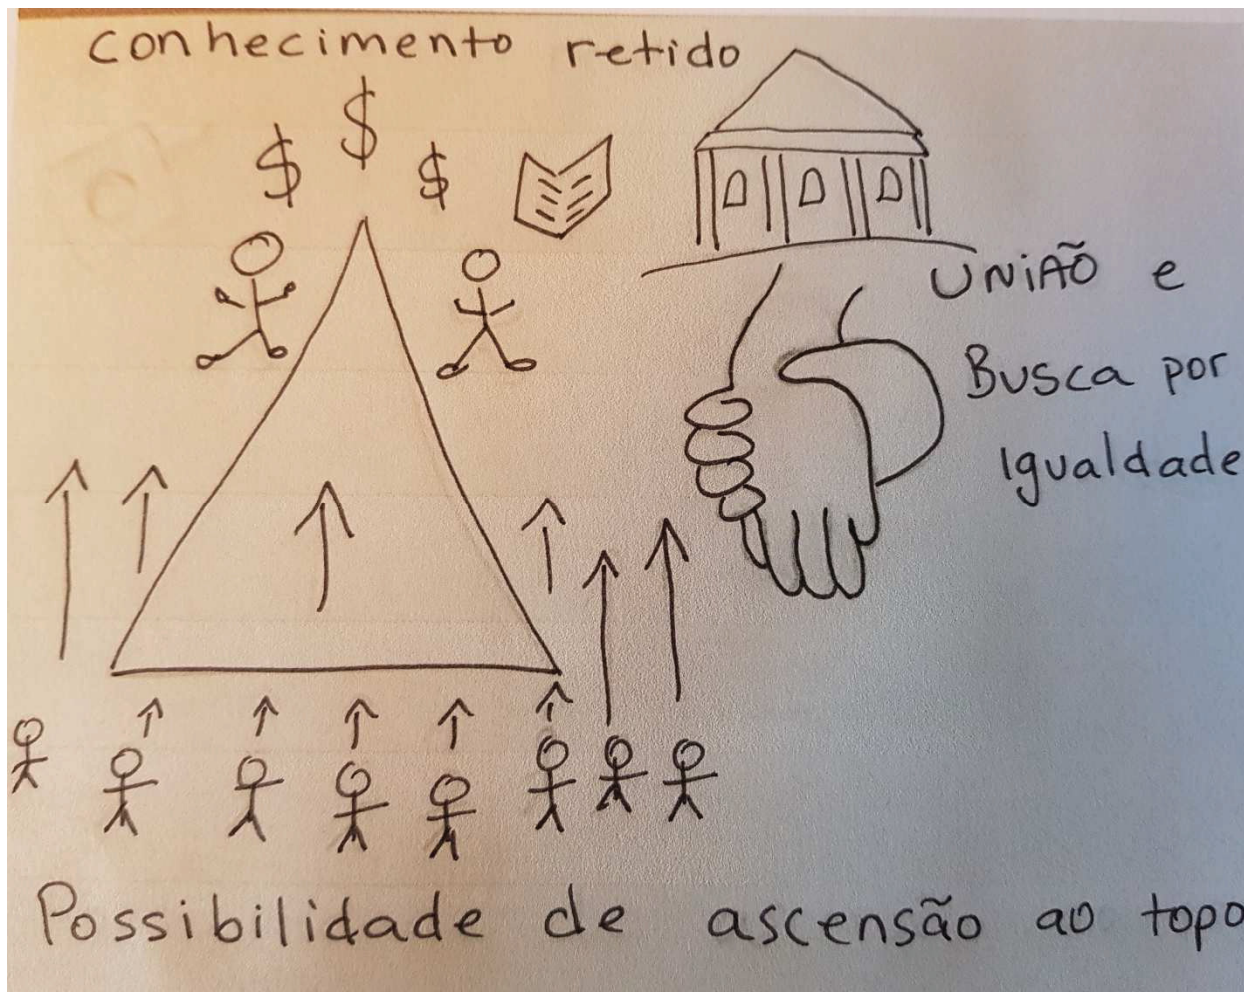 conhecimento retido
$ $ $
UNIÃO e
Busca por
Igualdade
Possibilidade de ascensão ao topo